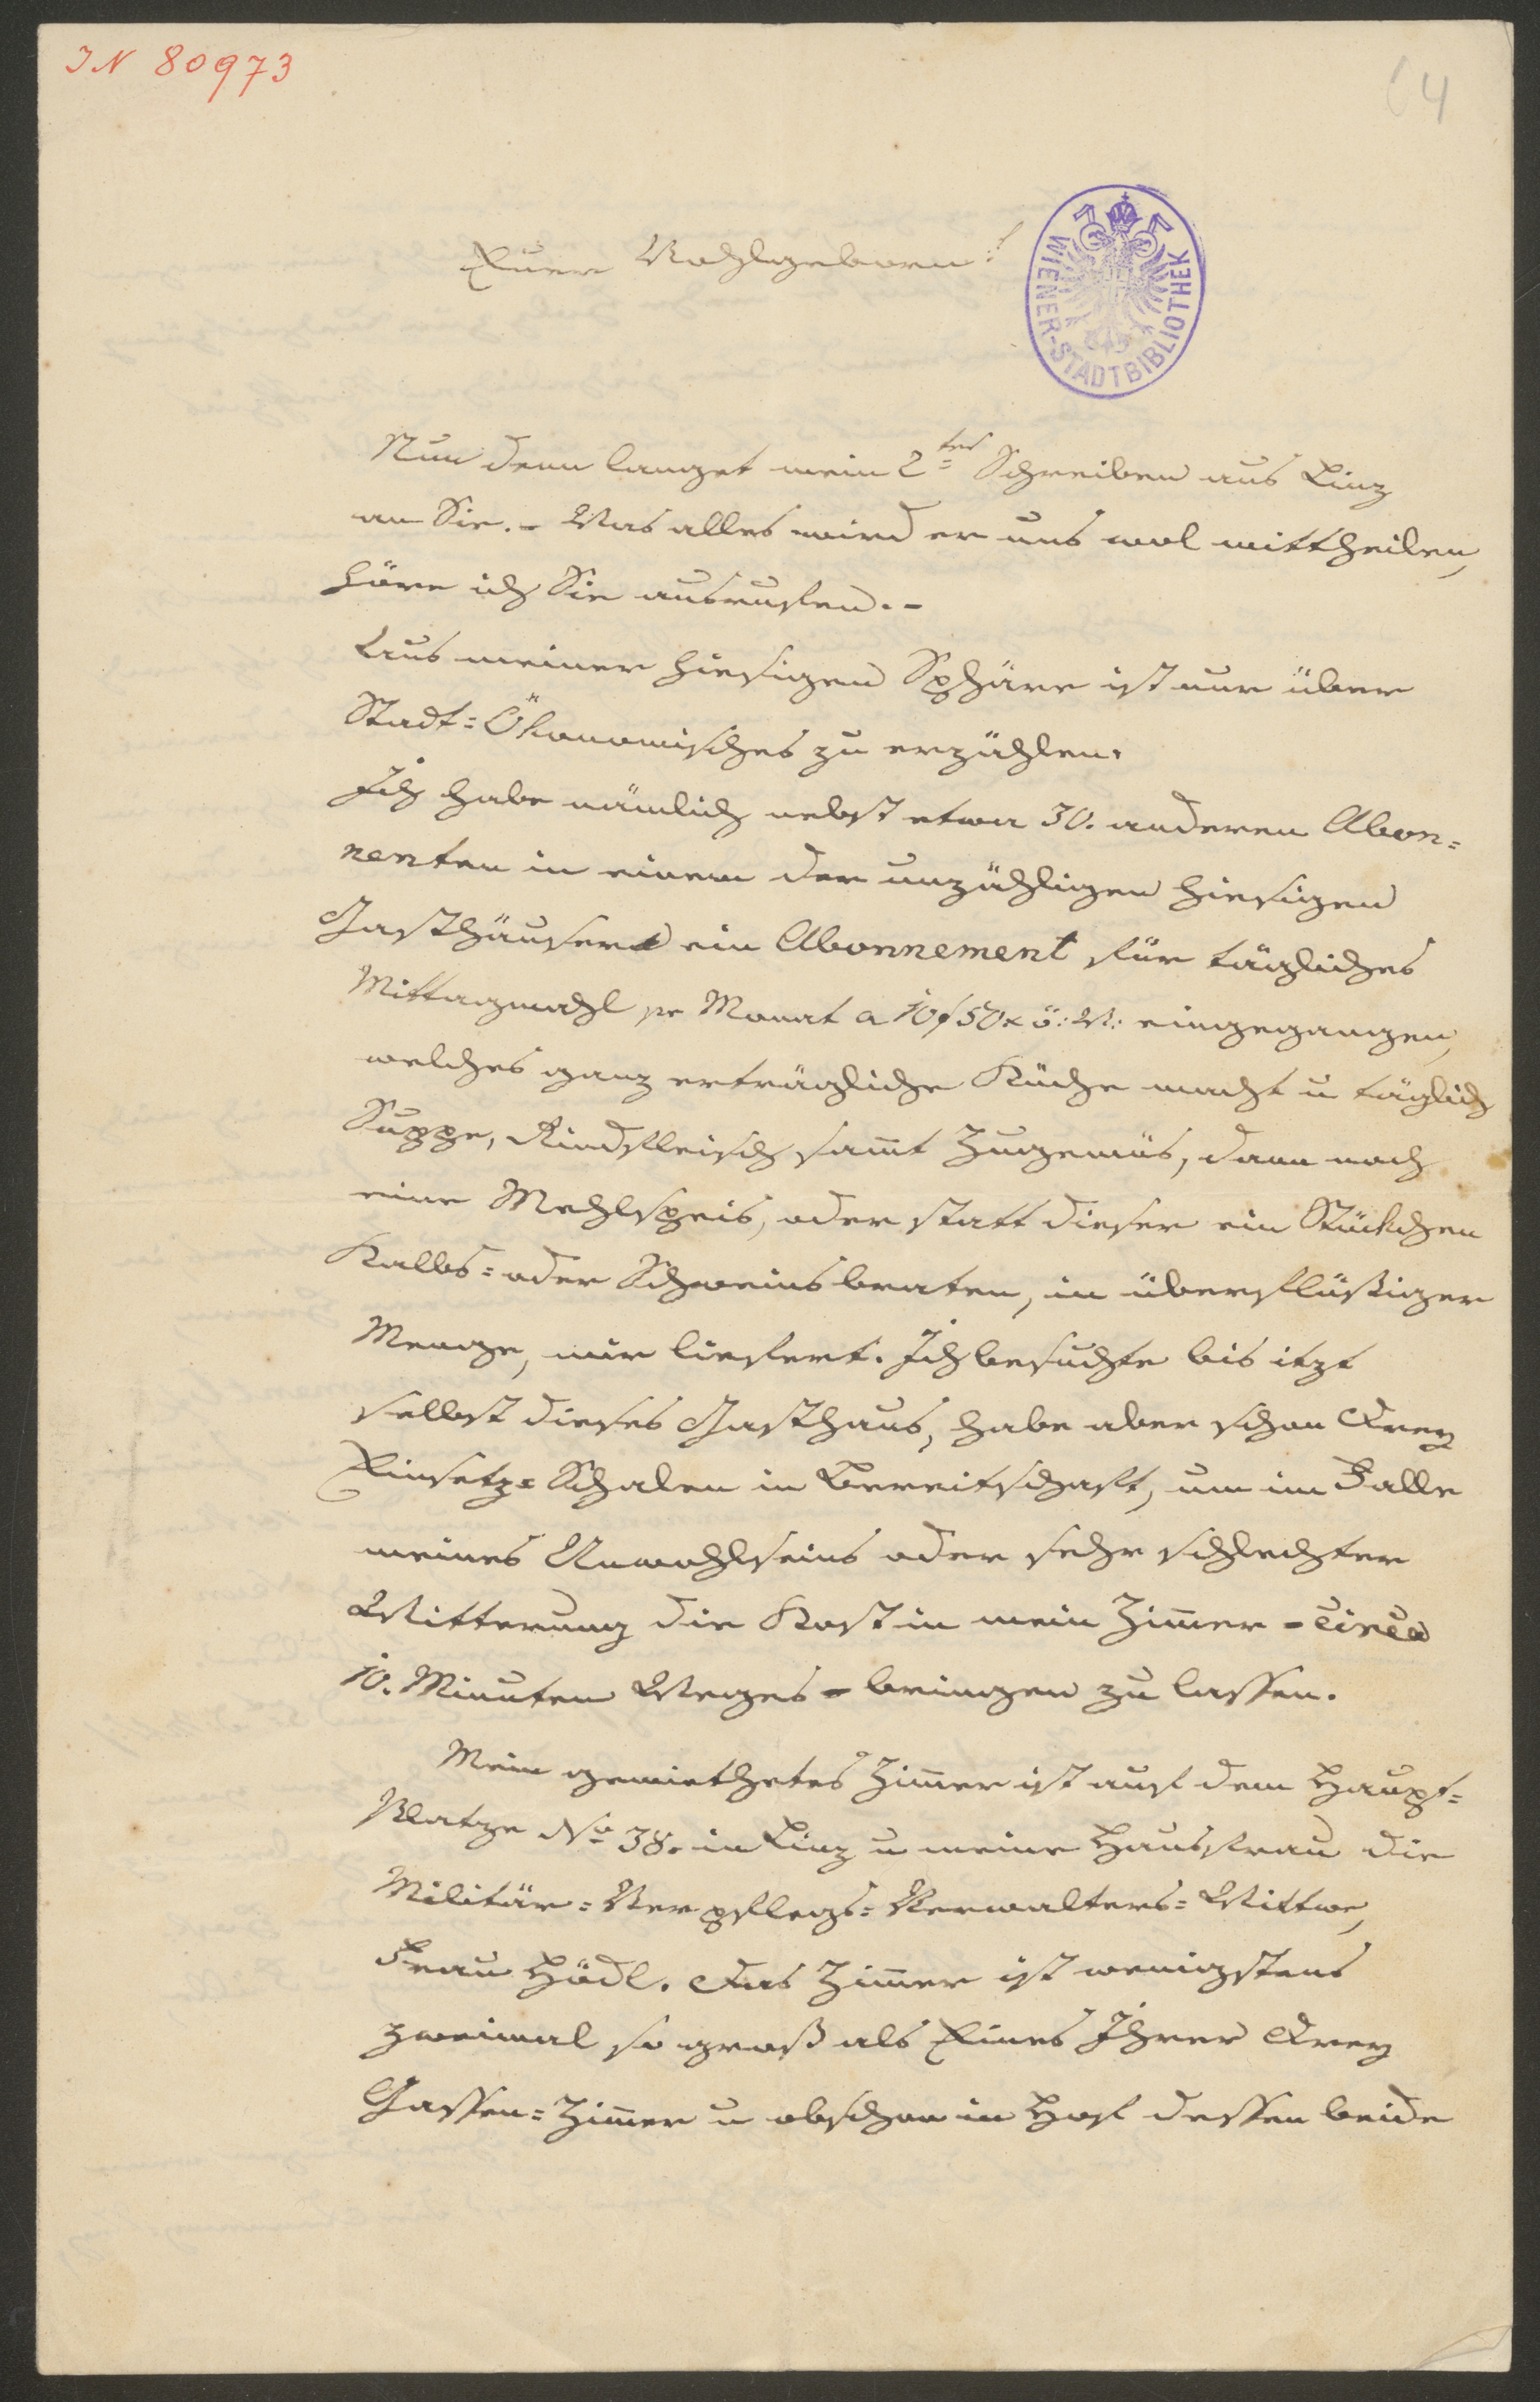 IN 80973
64
Euer Wohlgeboren!
WIENER-STADTBIBLIOTHEK
Nun denn langet mein 2tes Schreiben aus Linz
an Sie. – Was alles wird er uns wol mittheilen,
höre ich Sie ausrufen. –
Aus meiner hiesigen Sphäre ist nur über
Stadt=Ökonomisches zu erzählen.
Ich habe nämlich nebst etwa 30. anderen Abon=
nenten in einem der unzähligen hiesigen
Gasthäuser ein Abonnement für tägliches
Mittagmahl pr Monat a 10 f 50 x ö: W: eingegangen,
welches ganz erträgliche Küche macht u täglich
Suppe, Rindfleisch sam̄t Zugemüs, dann noch
eine Mehlspeis, oder statt dieser ein Stückchen
Kalbs= oder Schweinsbraten, in überflüßiger
Menge, mir liefert. Ich besuchte bis itzt
selbst dieses Gasthaus, habe aber schon Drey
Einsetz=Schalen in Bereitschaft, um im Falle
meines Unwohlseins oder sehr schlechter
Witterung die Kost in mein Zim̄er – circa
10. Minuten Weges – bringen zu lassen.
Mein gemiethetes Zim̄er ist auf dem Haupt=
Platze No 38. in Linz u meine Hausfrau die
Militär=Verpflegs=Verwalters=Wittwe,
Frau Hödl. Das Zim̄er ist wenigstens
zweimal so groß als Eines Ihrer Drey
Gassen=Zim̄er u obschon in Hof dessen beide